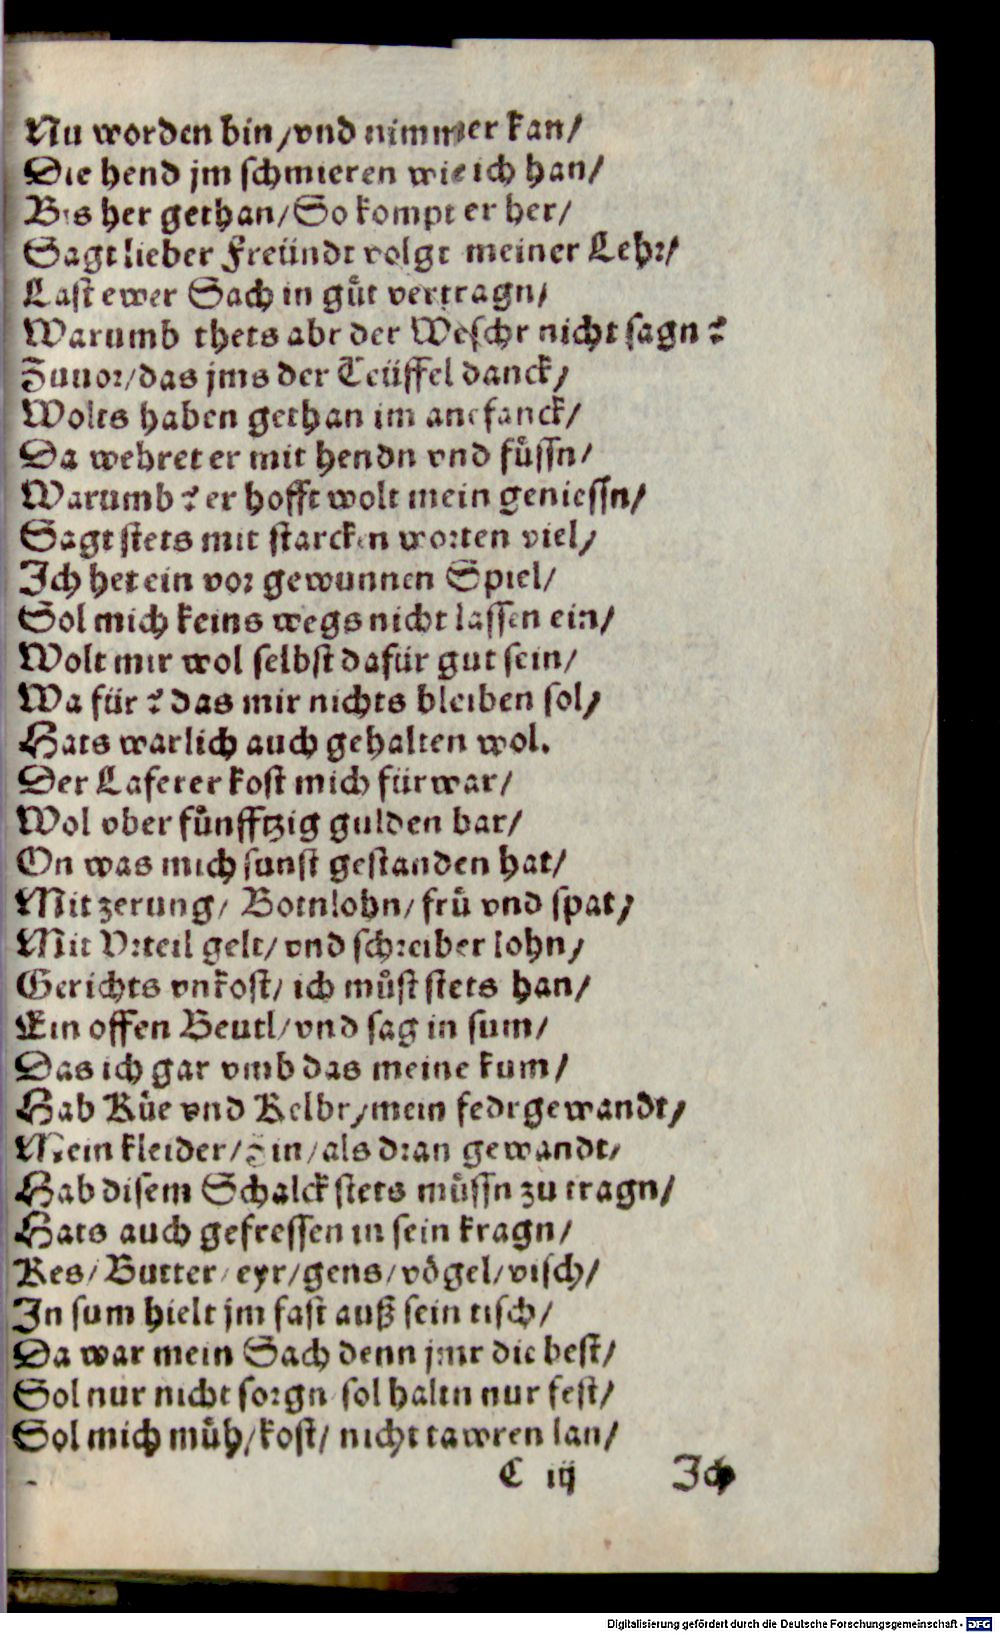 Nu worden bin / vnd nimmer kan /
Die hend jm schmieren wie ich han /
Bis her gethan / So kompt er her /
Sagt lieber Freündt volgt meiner Lehr /
Last ewer Sach in gůt vertragn /
Warumb thets abr der Weschr nicht sagn?
Zuuor / das jms der Teüffel danck /
Wolts haben gethan im anefanck /
Da wehret er mit hendn vnd fůssn /
Warumb? er hofft wolt mein geniessn /
Sagt stets mit starcken worten viel /
Ich het ein vor gewunnen Spiel /
Sol mich keins wegs nicht lassen ein /
Wolt mir wol selbst dafür gut sein /
Wa für? das mir nichts bleiben sol /
Hats warlich auch gehalten wol.
Der Laferer kost mich fürwar /
Wol vber fůnfftzig gulden bar /
On was mich sunst gestanden hat /
Mit zerung / Botnlohn / frů vnd spat /
Mit Vrteil gelt / vnd schreiber lohn /
Gerichts vnkost / ich můst stets han /
Ein offen Beutl / vnd sag in sum /
Das ich gar vmb das meine kum /
Hab Kůe vnd Kelbr / mein fedrgewandt /
Mein kleider / Zin / als dran gewandt /
Hab disem Schalck stets můssn zu tragn /
Hats auch gefressen in sein kragn /
Kes / Butter / eyr / gens / vögel / visch /
In sum hielt jm fast auß sein tisch /
Da war mein Sach denn jmr die best /
Sol nur nicht sorgn sol haltn nur fest /
Sol mich můh / kost / nicht tawren lan /
C iij Ich
Digitalisierung gefördert durch die Deutsche Forschungsgemeinschaft - DFG